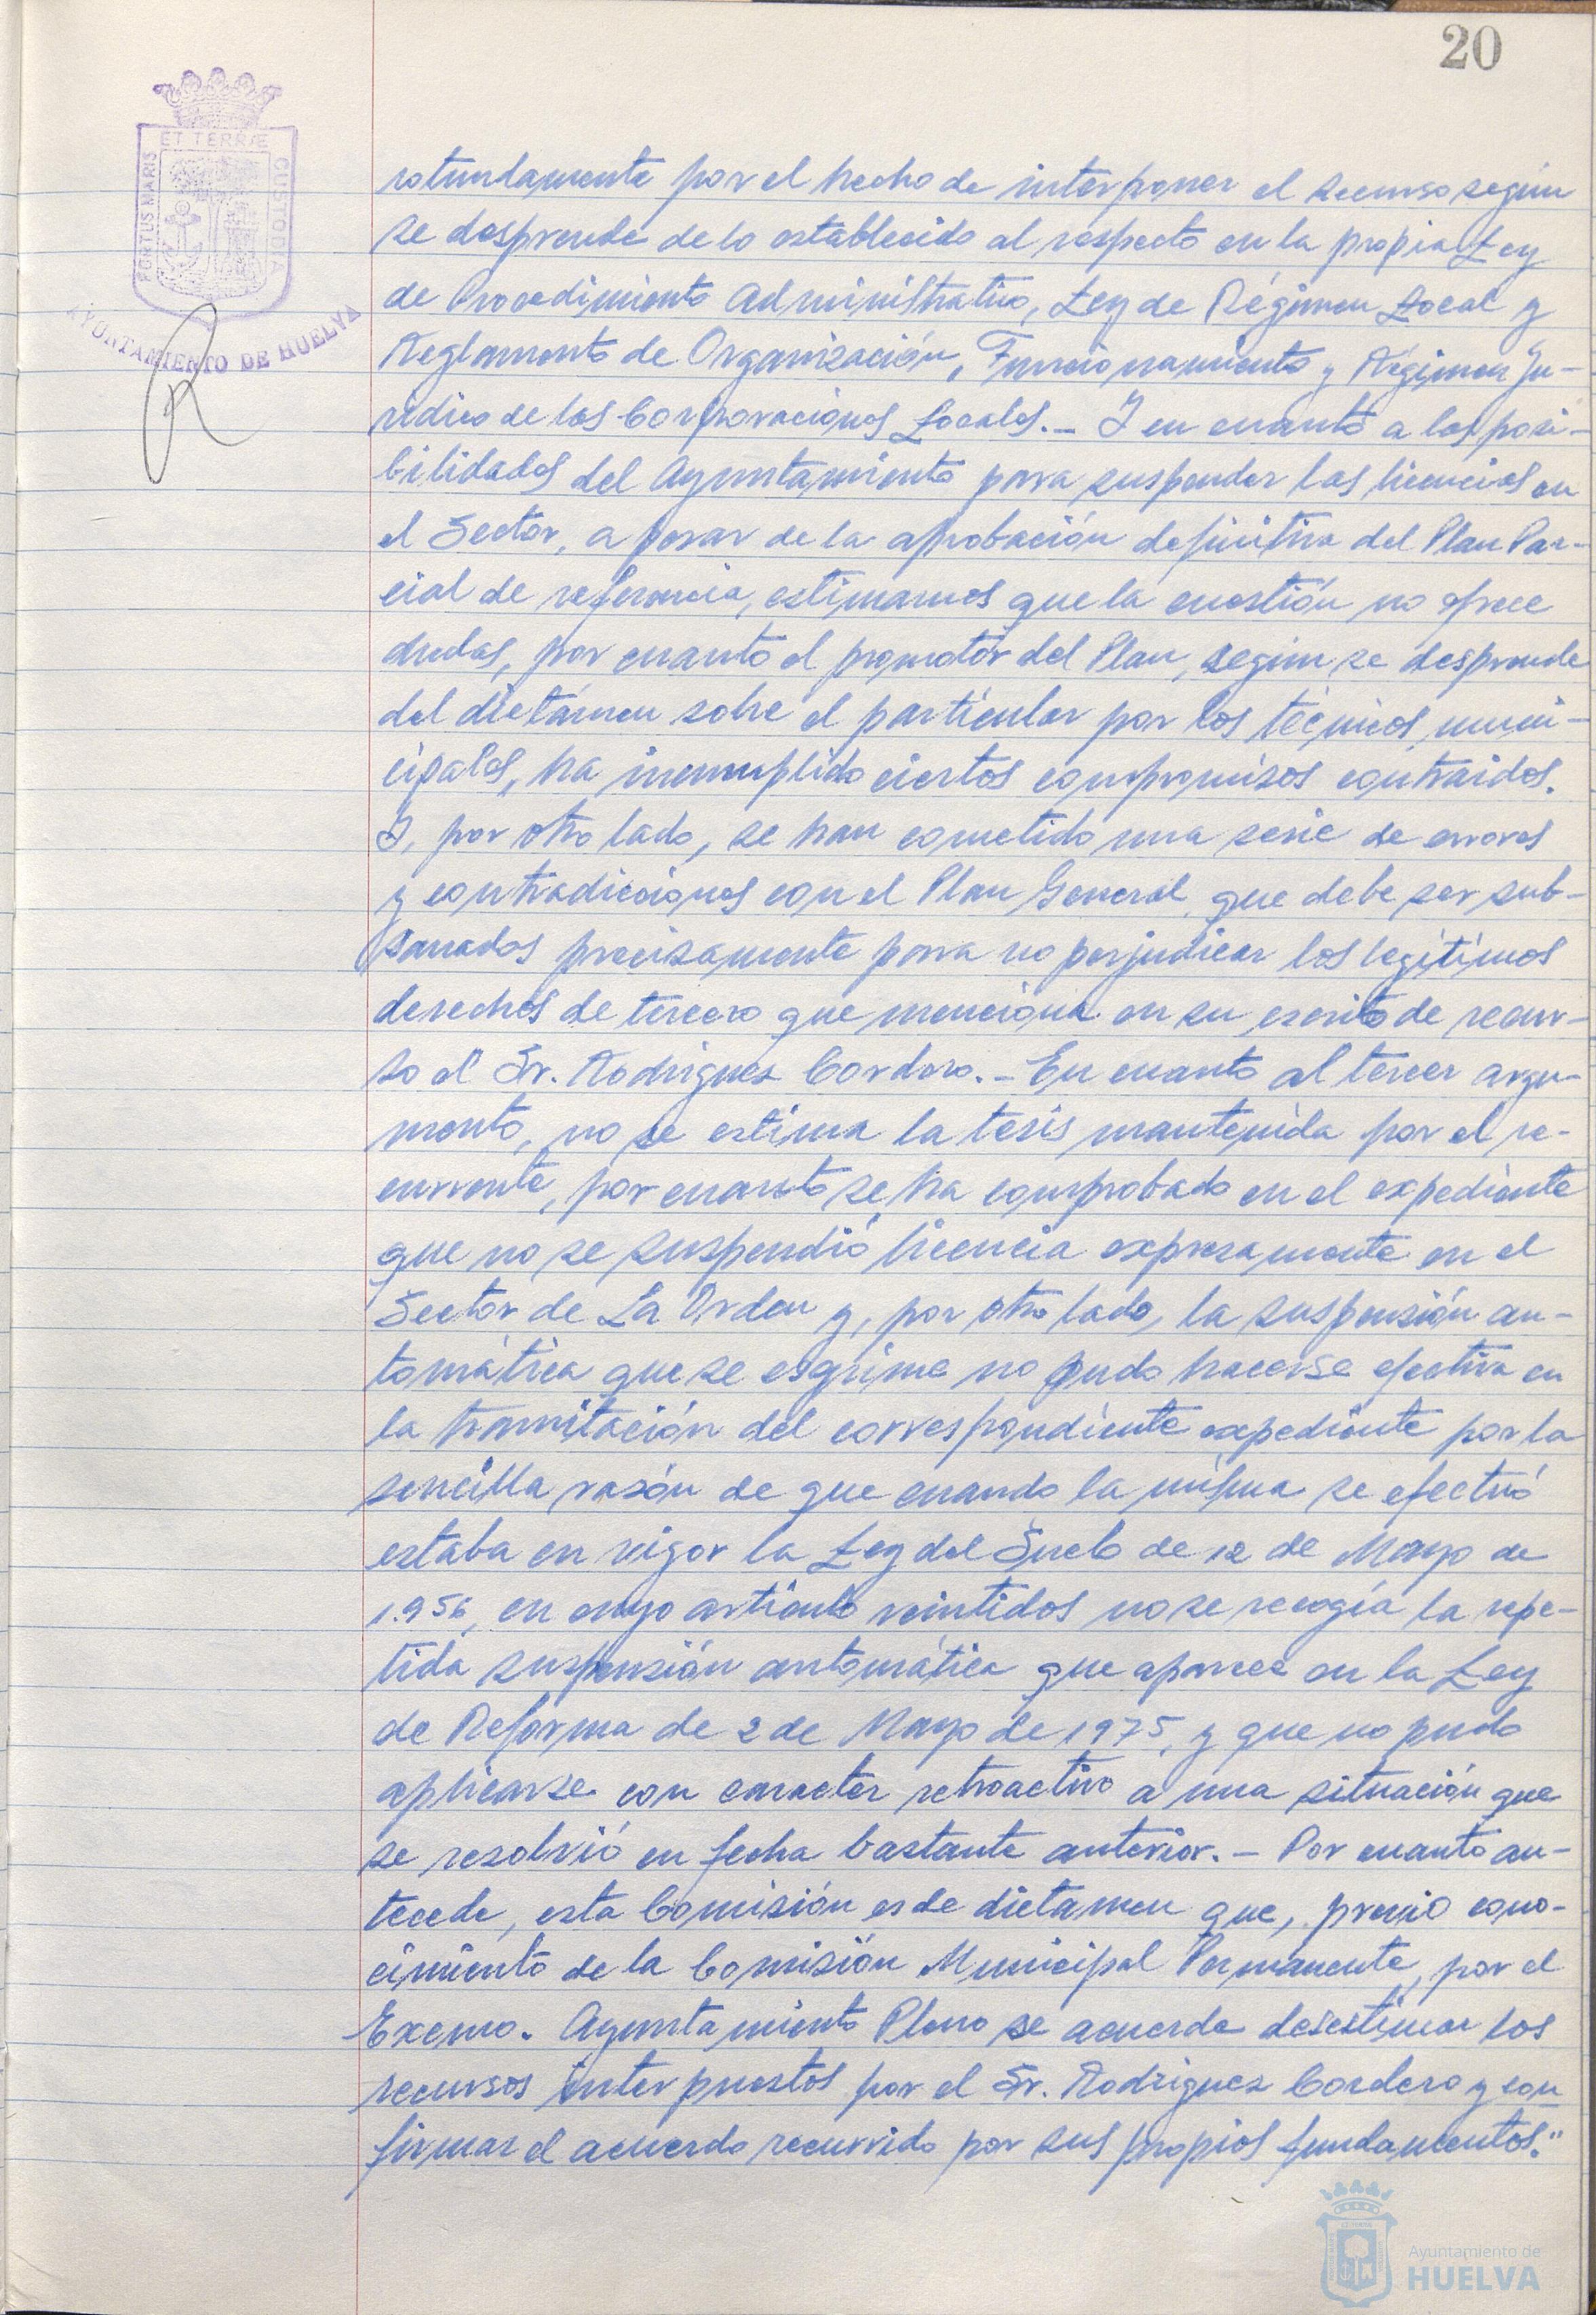 20
ET TERRÆ
PORTUS MARIS
CUSTODIA
AYUNTAMIENTO DE HUELVA
rotundamente por el hecho de interponer el recurso según
se desprende de lo establecido al respecto en la propia Ley
de Procedimiento Administrativo, Ley de Régimen Local y
Reglamento de Organización, Funcionamiento y Régimen Ju-
rídico de las Corporaciones Locales.- Y en cuanto a las posi-
bilidades del Ayuntamiento para suspender las licencias en
el Sector, a pesar de la aprobación definitiva del Plan Par-
cial de referencia, estimamos que la cuestión no ofrece
dudas, por cuanto el promotor del Plan, según se desprende
del dictámen sobre el particular por los técnicos muni-
cipales, ha incumplido ciertos compromisos contraidos.
Y, por otro lado, se han cometido una serie de errores
y contradicciones con el Plan General, que debe ser sub-
sanados precisamente para no perjudicar los legítimos
derechos de tercero que menciona en su escrito de recur-
so el Sr. Rodriguez Cordero.- En cuanto al tercer argu-
mento, no se estima la tesis mantenida por el re-
currente, por cuanto se ha comprobado en el expediente
que no se suspendió licencia expresamente en el
Sector de La Orden y, por otro lado, la suspensión au-
tomática que se esgrime no pudo hacerse efectiva en
la tramitación del correspondiente expediente por la
sencilla razón de que cuando la misma se efectuó
estaba en vigor la Ley del Suelo de 12 de Mayo de
1.956, en cuyo artículo veintidos no se recogía la repe-
tida suspensión automática que aparece en la Ley
de Reforma de 2 de Mayo de 1975, y que no pudo
aplicarse con caracter retroactivo a una situación que
se resolvió en fecha bastante anterior.- Por cuanto an-
tecede, esta Comisión es de dictamen que, previo cono-
cimiento de la Comisión Municipal Permanente, por el
Excmo. Ayuntamiento Pleno se acuerde desestimar los
recursos interpuestos por el Sr. Rodriguez Cordero y con
firmar el acuerdo recurrido por sus propios fundamentos."
Ayuntamiento de
HUELVA